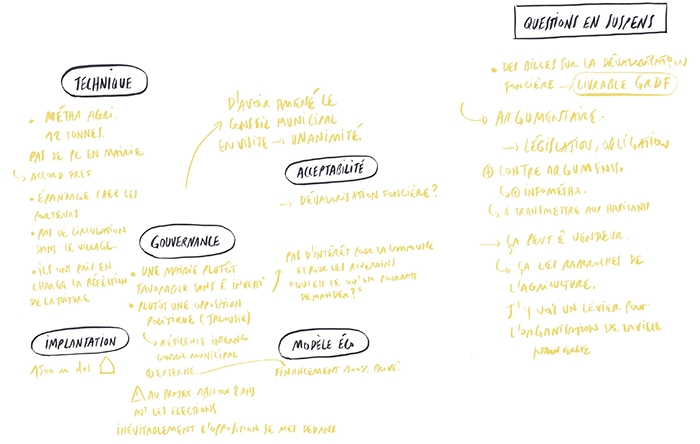 TECHNIQUE
• MÉTHA AGRI.
12 TONNES.
PAS DE PC EN MAIRIE
ACCORD PREF
• ÉPANDAGE CHEZ LES
PORTEURS
• PAS DE CIRCULATION
DANS LE VILLAGE.
• ILS ONT PRIS EN
CHARGE LA RÉFECTION
DE LA TOITURE
IMPLANTATION
1500 m des
D'AVOIR AMENÉ LE
CONSEIL MUNICIPAL
EN VISITE → UNANIMITÉ.
GOUVERNANCE
• UNE MAIRIE PLUTÔT
FAVORABLE SANS Ê INVESTI
• PLUTÔT UNE OPPOSITION
POLITIQUE (JALOUSIE)
↳ RÉTICENCE INTERNE
CONSEIL MUNICIPAL
⚠ AU PROJET 1 AN OU 2 ANS
AVT LES ELECTIONS
INÉVITABLEMENT L'OPPOSITION SE MET DEDANS
ACCEPTABILITÉ
→ DÉVALORISATION FONCIÈRE?
PAS D'INTÉRÊT POUR LA COMMUNE
ET POUR LES RIVERAINS
QU'EST CE QU'ON POURRAIT
DEMANDER?
MODÈLE ÉCO
FINANCEMENT 100% PRIVÉ.
QUESTIONS EN SUSPENS
• DES BILLES SUR LA DÉVALORISATION
FONCIÈRE → LIVRABLE GRDF
↳ ARGUMENTAIRE.
→ LÉGISLATION, OBLIGATIONS
⊕ CONTRE ARGUMENTS.
↳ ⊕ INFOMÉTHA.
↳ À TRANSMETTRE AUX HABITANTS
→ ÇA PEUT Ê VENDEUR.
↳ ÇA LES RAPPROCHES DE
L'AGRICULTURE.
J'Y VOIS UN LEVIER POUR
L'ORGANISATION DE LA VILLE